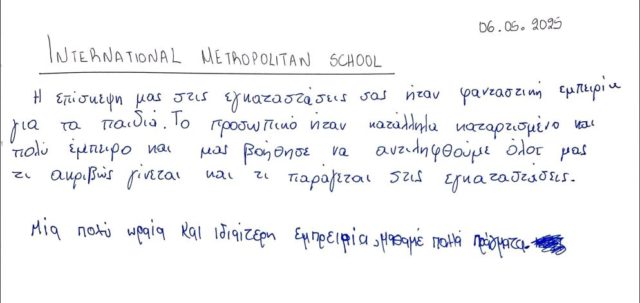 06.05.2025
INTERNATIONAL METROPOLITAN SCHOOL
Η επίσκεψη μας στις εγκαταστάσεις σας ήταν φανταστική εμπειρία
για τα παιδιά. Το προσωπικό ήταν κατάλληλα καταρτισμένο και
πολύ έμπειρο και μας βοήθησε να αντιληφθούμε όλοι μας
τι ακριβώς γίνεται και τι παράγεται στις εγκαταστάσεις.
Μία πολύ ωραία και ιδιαίτερη εμπρειρία, μάθαμε πολλά πράγματα.